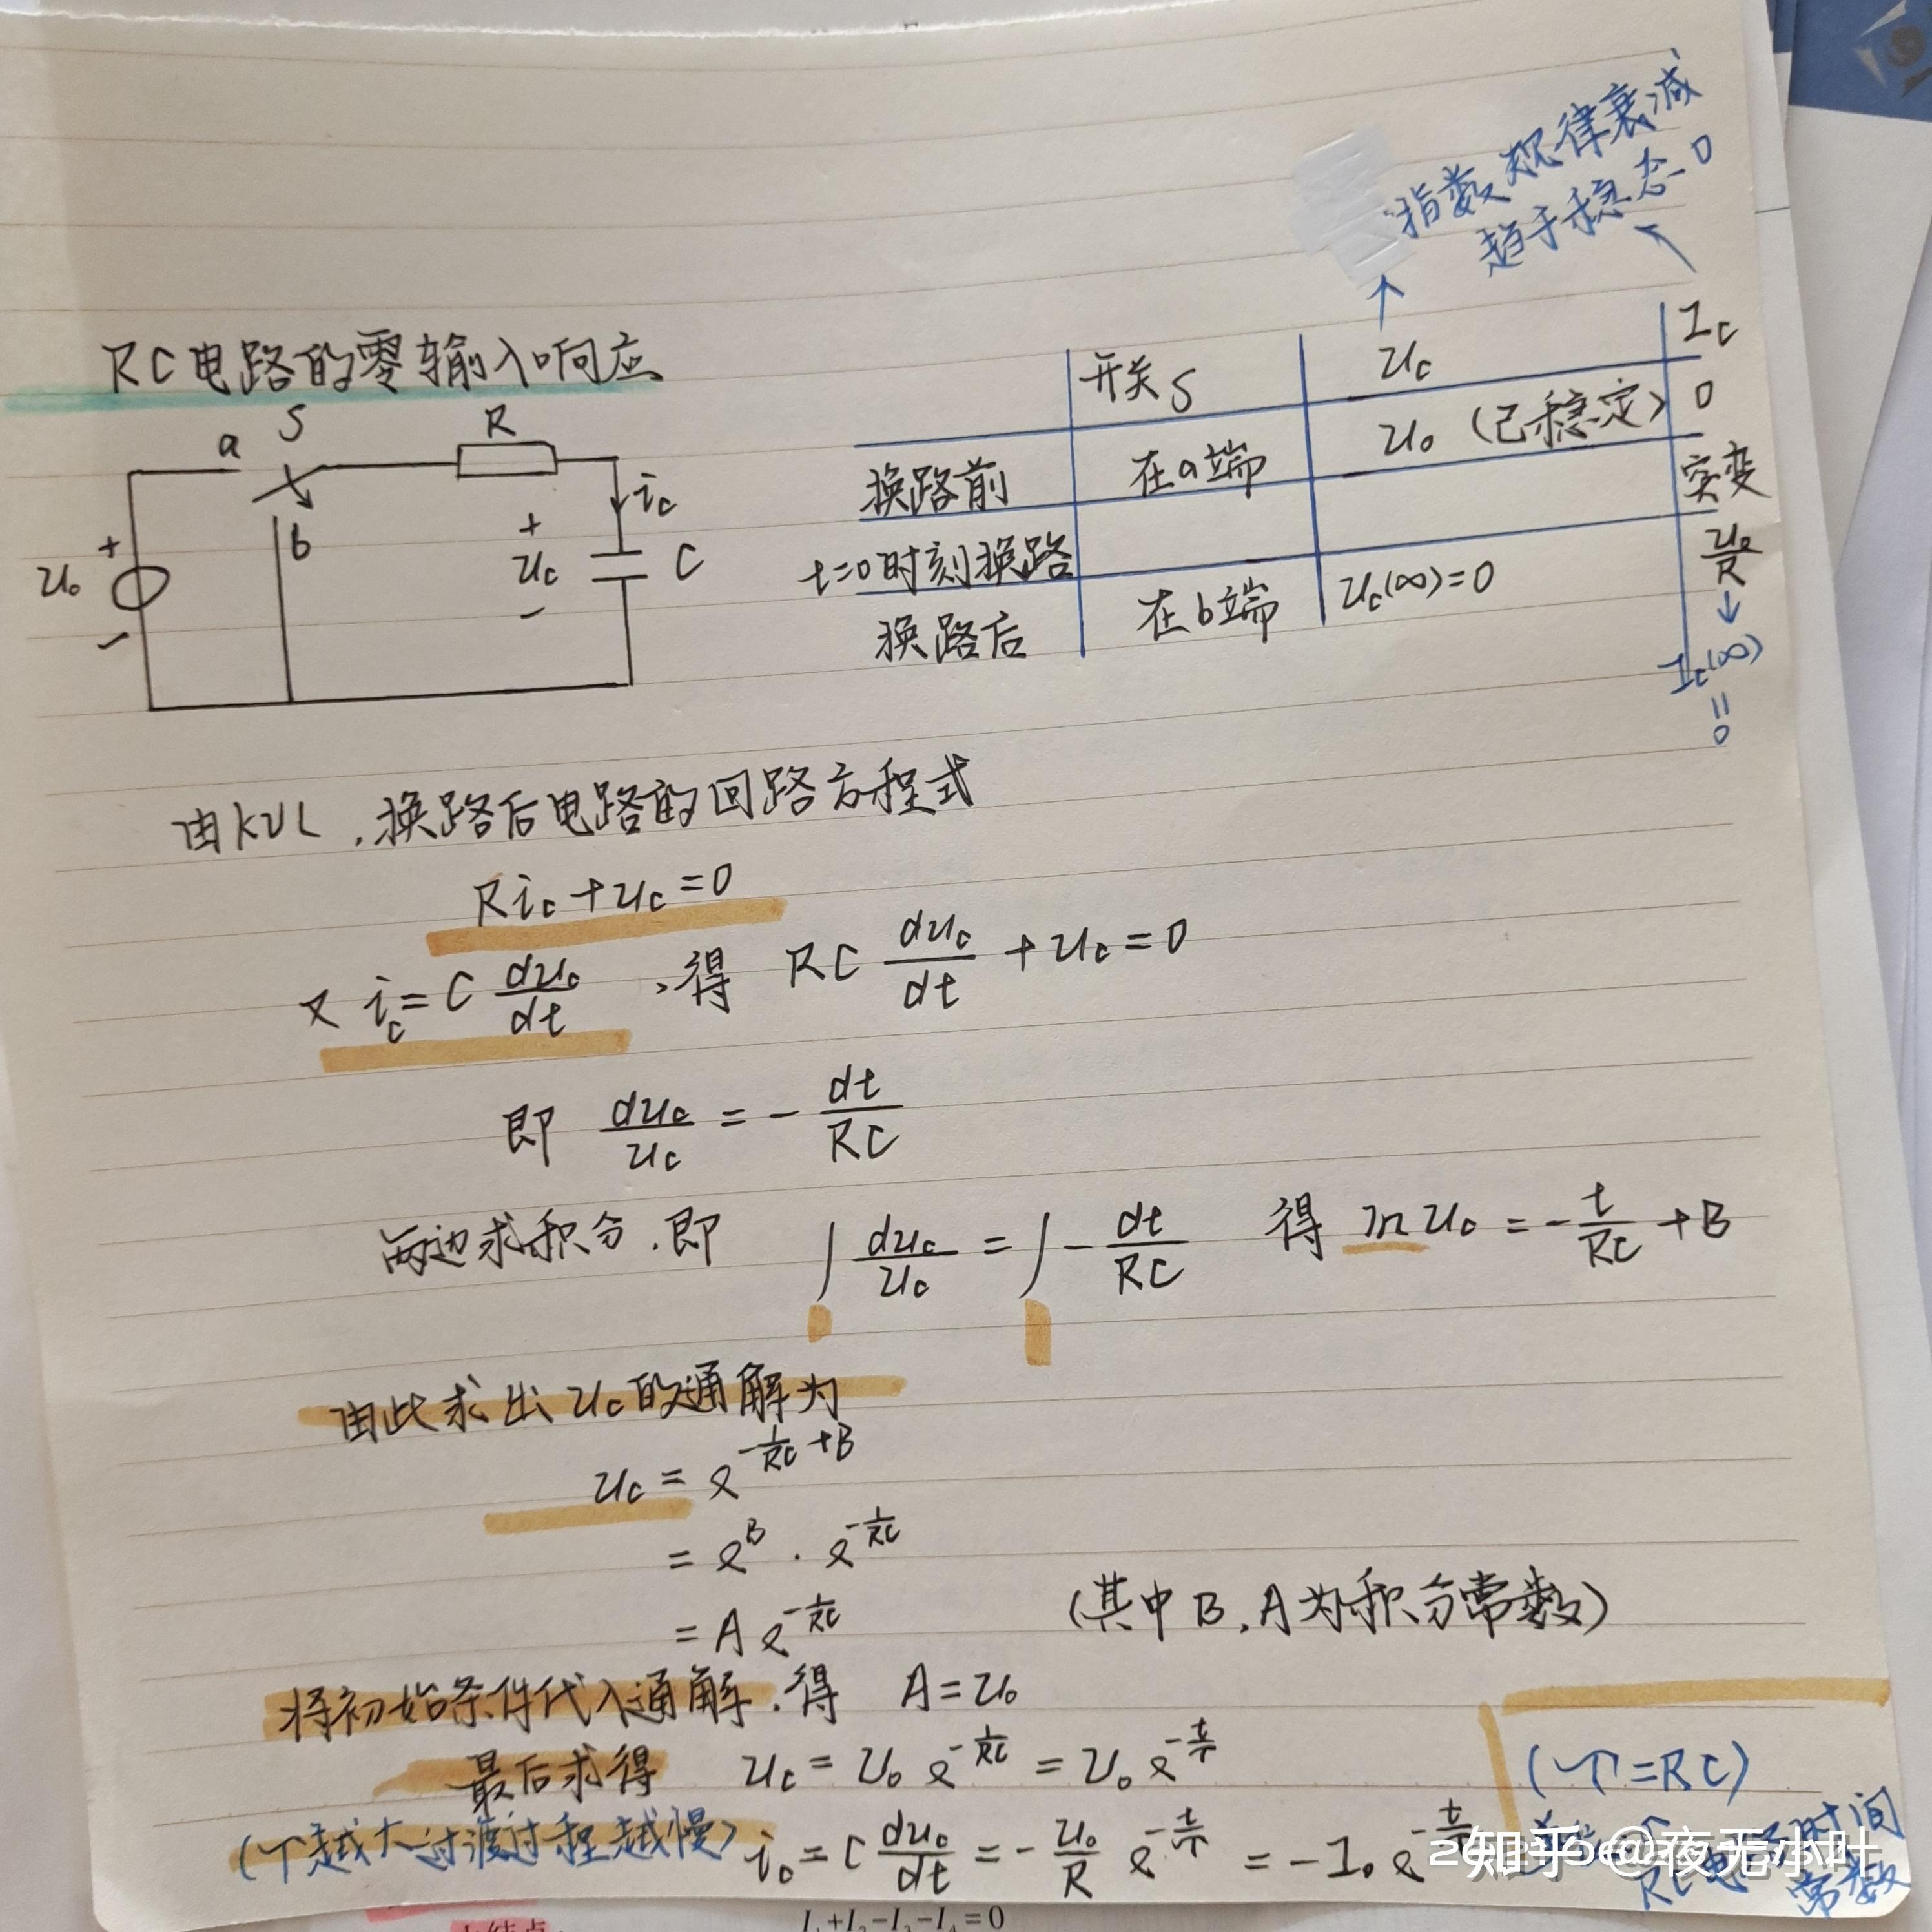 指数规律衰减
趋于稳态0
RC电路的零输入响应
a S R
b
+ u₀ −
+ u_c −
i_c
C
开关S u_c I_c
换路前 在a端 u₀（已稳定） 0
t=0时刻换路 突变
换路后 在b端 u_c(∞)=0 u₀/R ↓ I_c(∞)=0
由KVL，换路后电路的回路方程式
Ri_c+u_c=0
又 i_c=C du_c/dt，得 RC du_c/dt + u_c=0
即 du_c/u_c = - dt/RC
两边求积分，即 ∫ du_c/u_c = ∫ - dt/RC 得 ln u_c = - t/RC + B
由此求出u_c的通解为
u_c = e^(-t/RC +B)
= e^B · e^(-t/RC)
= A e^(-t/RC) （其中B，A为积分常数）
将初始条件代入通解，得 A=u₀
最后求得 u_c = U₀ e^(-t/RC) = U₀ e^(-t/τ) （τ=RC）
（τ越大过渡过程越慢） i_c = C du_c/dt = - u₀/R e^(-t/τ) = -I₀ e^(-t/τ)
时间
常数
知乎 @夜无小叶
I₁+I₂−I₃−I₄=0